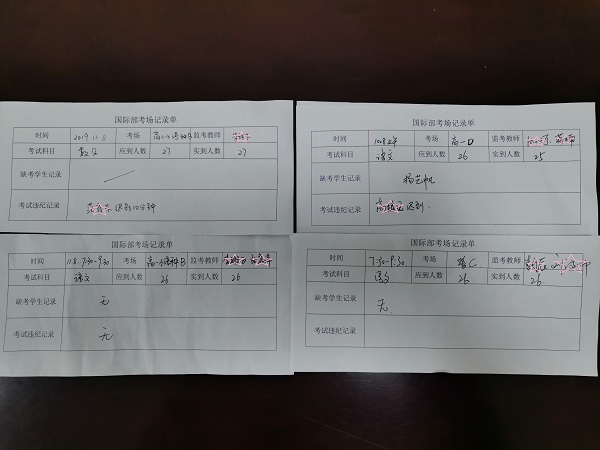 国际部考场记录单
时间 2019.11.8 考场 监考教师
考试科目 数学 应到人数 27 实到人数 27
缺考学生记录
考试违纪记录 迟到10分钟
国际部考场记录单
时间 考场 高一D 监考教师
考试科目 语文 应到人数 26 实到人数 25
缺考学生记录
考试违纪记录 迟到
国际部考场记录单
时间 11.8 7:30-9:30 考场 监考教师
考试科目 语文 应到人数 26 实到人数 26
缺考学生记录 无
考试违纪记录 无
国际部考场记录单
时间 7:30-9:30 考场 监考教师
考试科目 语文 应到人数 26 实到人数 26
缺考学生记录 无
考试违纪记录